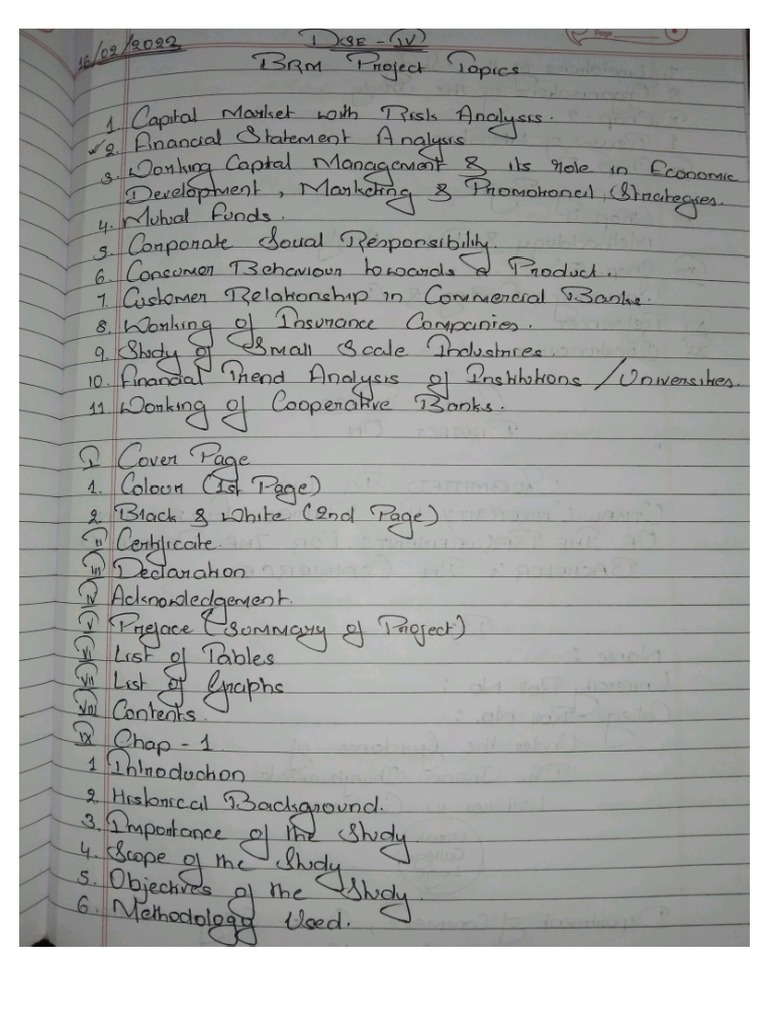 16/02/2022
DSE - IV
Page
BRM Project Topics
1. Capital Market with Risk Analysis.
2. Financial Statement Analysis
3. Working Capital Management & its role in Economic
Development, Marketing & Promotional Strategies.
4. Mutual Funds.
5. Corporate Social Responsibility.
6. Consumer Behaviour towards a Product.
7. Customer Relationship in Commercial Banks.
8. Working of Insurance Companies.
9. Study of Small Scale Industries.
10. Financial Trend Analysis of Institutions / Universities.
11 Working of Cooperative Banks.
I Cover Page
1. Colour (1st Page)
2. Black & White (2nd Page)
II Certificate.
III Declaration
IV Acknowledgement.
V Preface (Summary of Project)
VI List of Tables
VII List of Graphs
VIII Contents.
IX Chap - 1
1 Introduction
2. Historical Background.
3. Importance of the Study
4. Scope of the Study
5. Objectives of the Study.
6. Methodology Used.